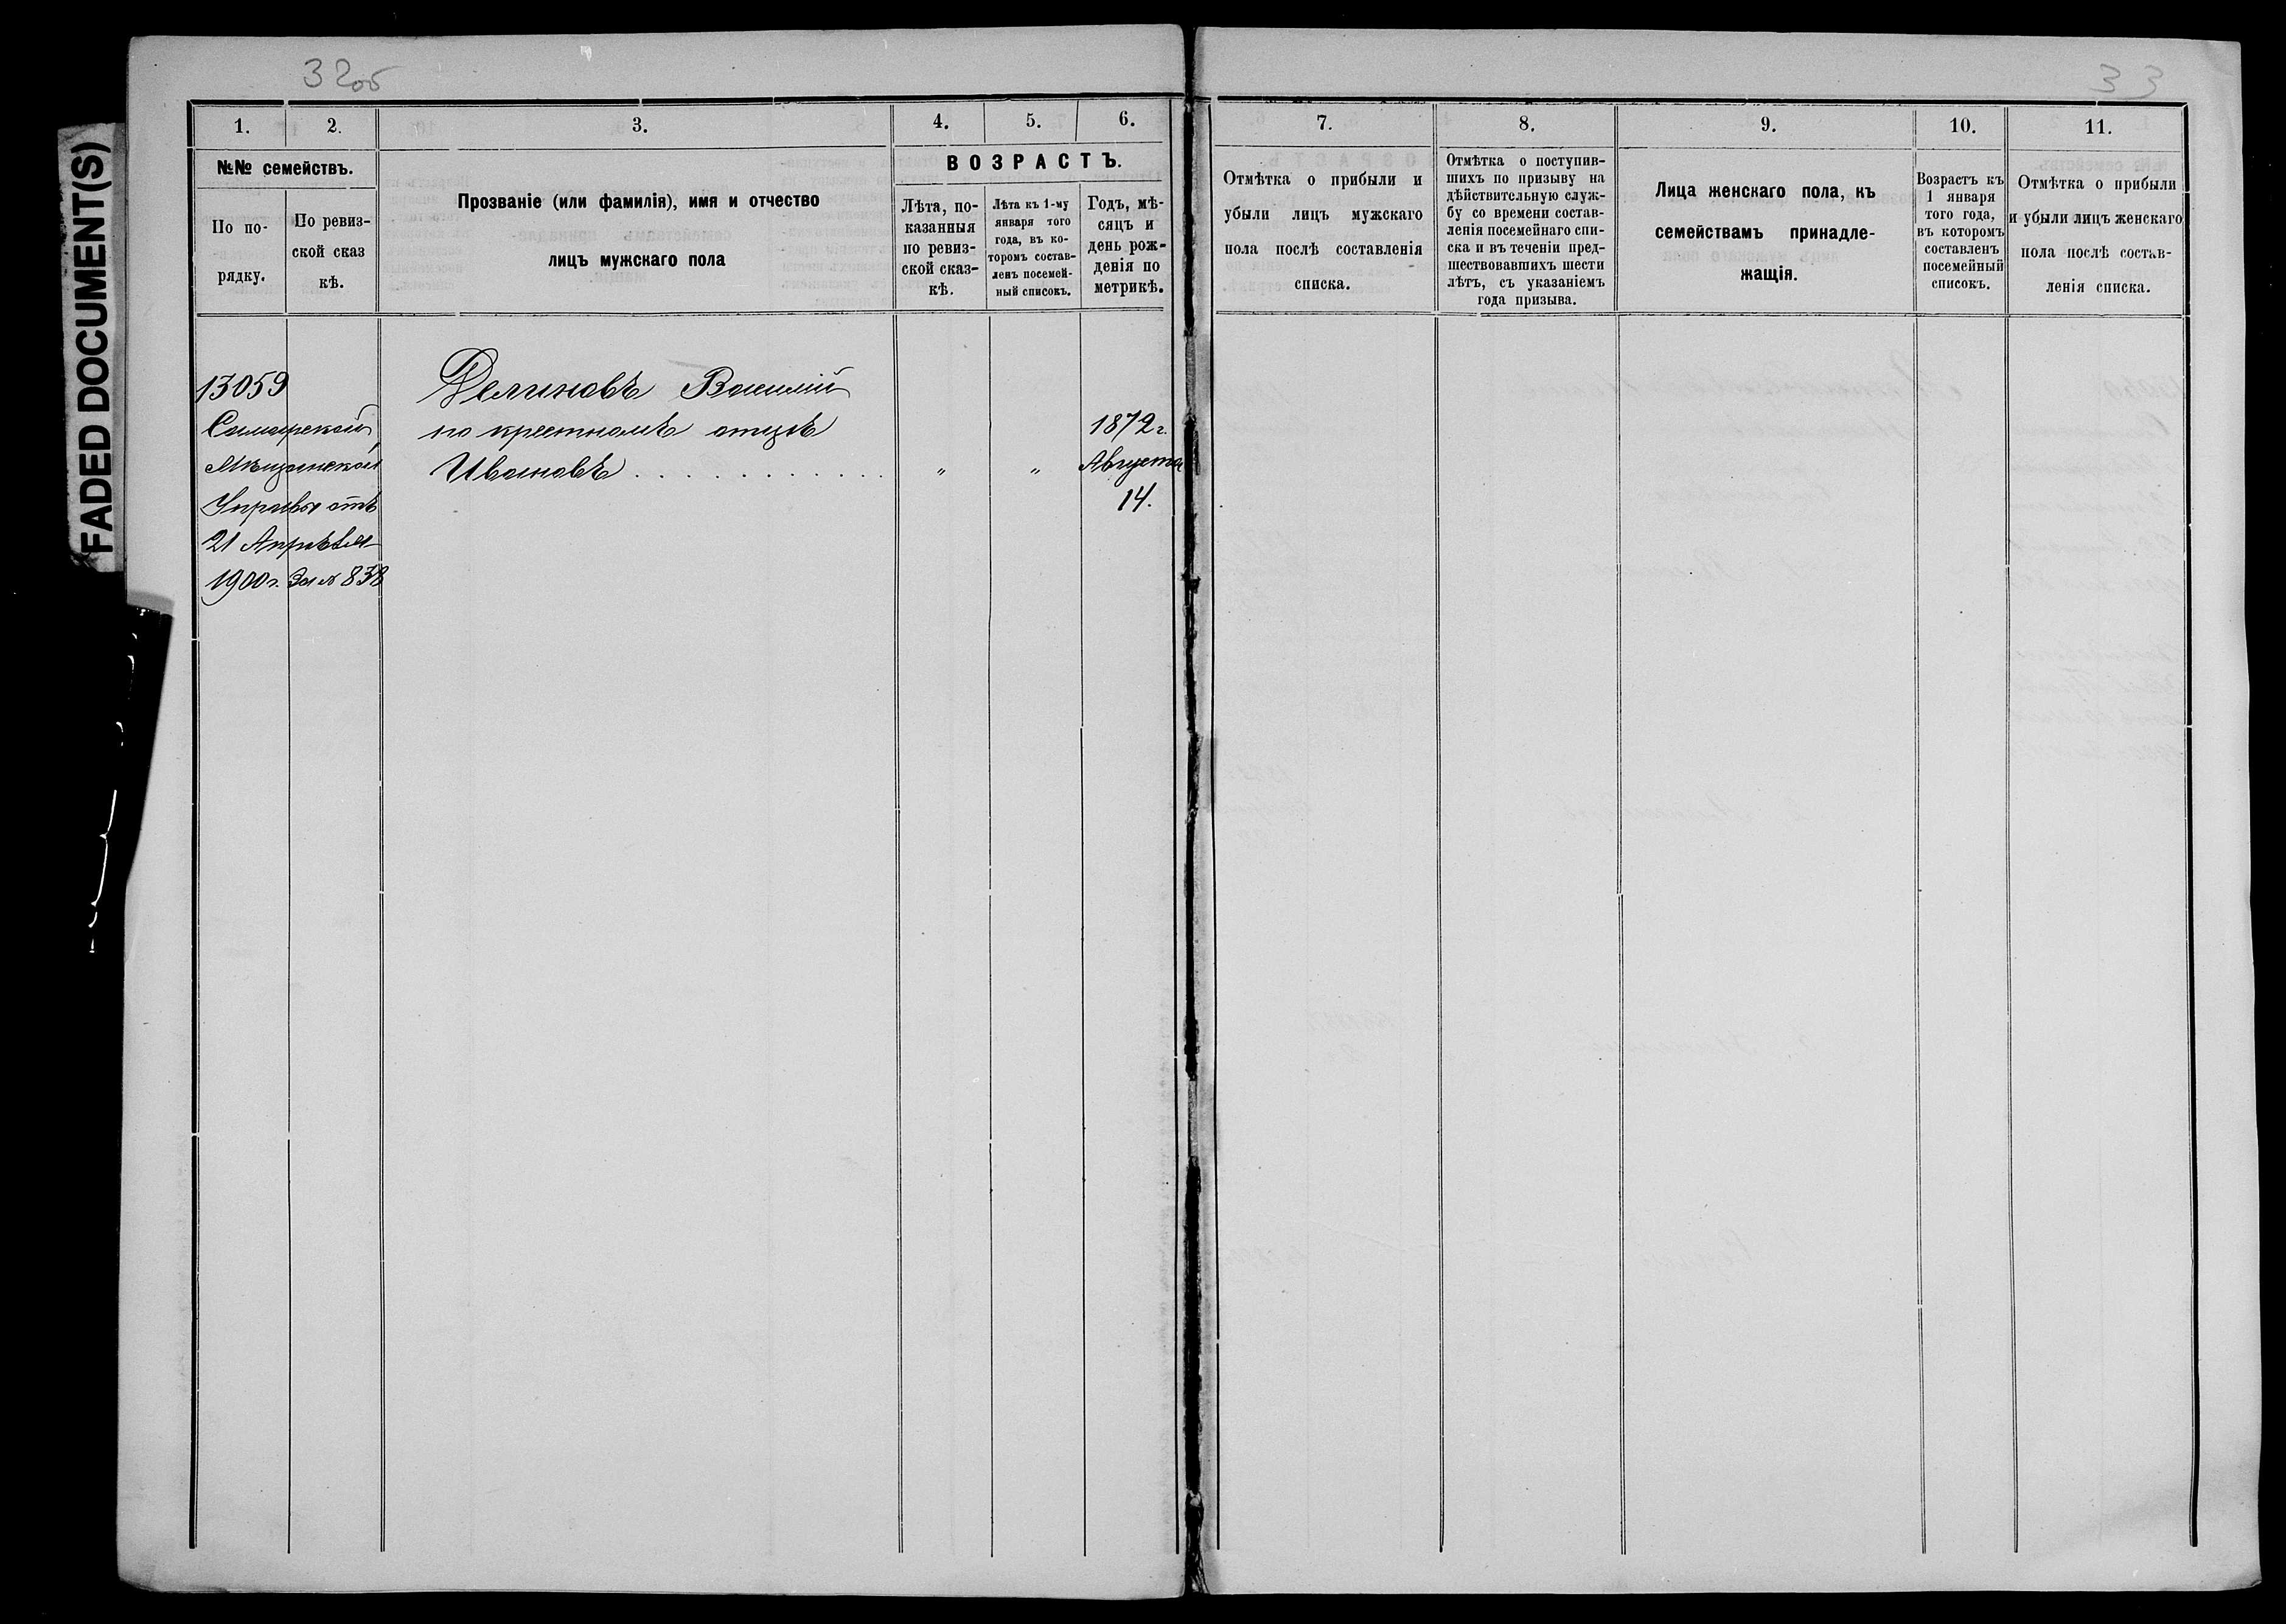 FADED DOCUMENT(S)
32об
1.
2.
3.
4.
5.
6.
№№ семействъ.
По по-
рядку.
По ревиз-
ской сказ
кѣ.
Прозваніе (или фамилія), имя и отчество
лицъ мужскаго пола
ВОЗРАСТЪ.
Лѣта, по-
казанныя
по ревиз-
ской сказ-
кѣ.
Лѣта къ 1-му
января того
года, въ ко-
торомъ состав-
ленъ посемей-
ный списокъ.
Годъ, мѣ-
сяцъ и
день рож-
денія по
метрикѣ.
13059
Самарской
Мѣщанской
Управы отъ
21 Апрѣля
1900 г. За № 838
Василій
по крестномъ отцѣ
Ивановъ . . . . . . . . . . „ „
1872 г.
Августа
14.
33
7.
8.
9.
10.
11.
Отмѣтка о прибыли и
убыли лицъ мужскаго
пола послѣ составленія
списка.
Отмѣтка о поступив-
шихъ по призыву на
дѣйствительную служ-
бу со времени состав-
ленія посемейнаго спи-
ска и въ теченіи пред-
шествовавшихъ шести
лѣтъ, съ указаніемъ
года призыва.
Лица женскаго пола, къ
семействамъ принадле-
жащія.
Возрастъ къ
1 января
того года,
въ которомъ
составленъ
посемейный
списокъ.
Отмѣтка о прибыли
и убыли лицъ женскаго
пола послѣ состав-
ленія списка.